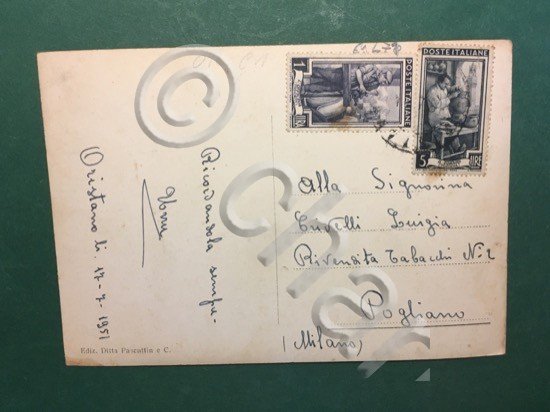 Ricordandola sempre
Oristano li. 17-7-1951
Ediz. Ditta Pascattin e C.
1
LIRE
POSTE ITALIANE
POSTE ITALIANE
5
LIRE
Alla Signorina
Luigia
Rivendita Tabacchi N. 2
Pogliano
(Milano)